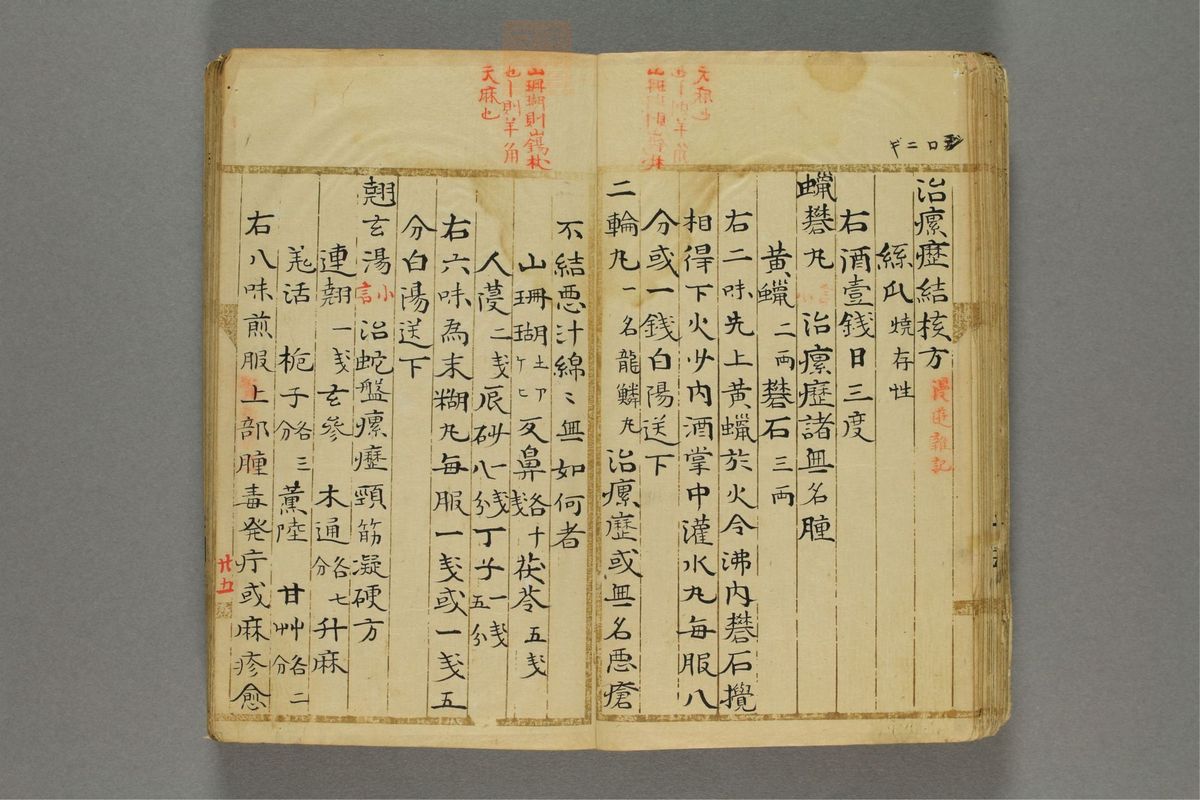 治瘰癧結核方
絲瓜 燒存性
右酒壹錢日三度
蠟礬丸 治瘰癧諸無名腫
黄蠟 二兩 礬石 三兩
右二味先上黄蠟於火令沸内礬石攪
相得下火少内酒掌中灌水丸毎服八
分或一錢白陽送下
二輪丸 一名龍鱗丸 治瘰癧或無名悪瘡
不結悪汁綿〻無如何者
山珊瑚
茯苓 五戔
人薓 二戔 辰砂 八分 丁子 一戔五分
右六味為末糊丸毎服一戔或一戔五
分白陽送下
翹玄湯 小言 治蛇盤瘰癧頸筋凝硬方
連翹 一戔 玄參 木通 各七分 升麻
羌活 梔子 各三分 薫陸 甘艸 各二分
右八味煎服上部腫毒発疔或麻疹愈
山珊瑚則
也丨則羊角
天麻也
漫遊雜記
廿五